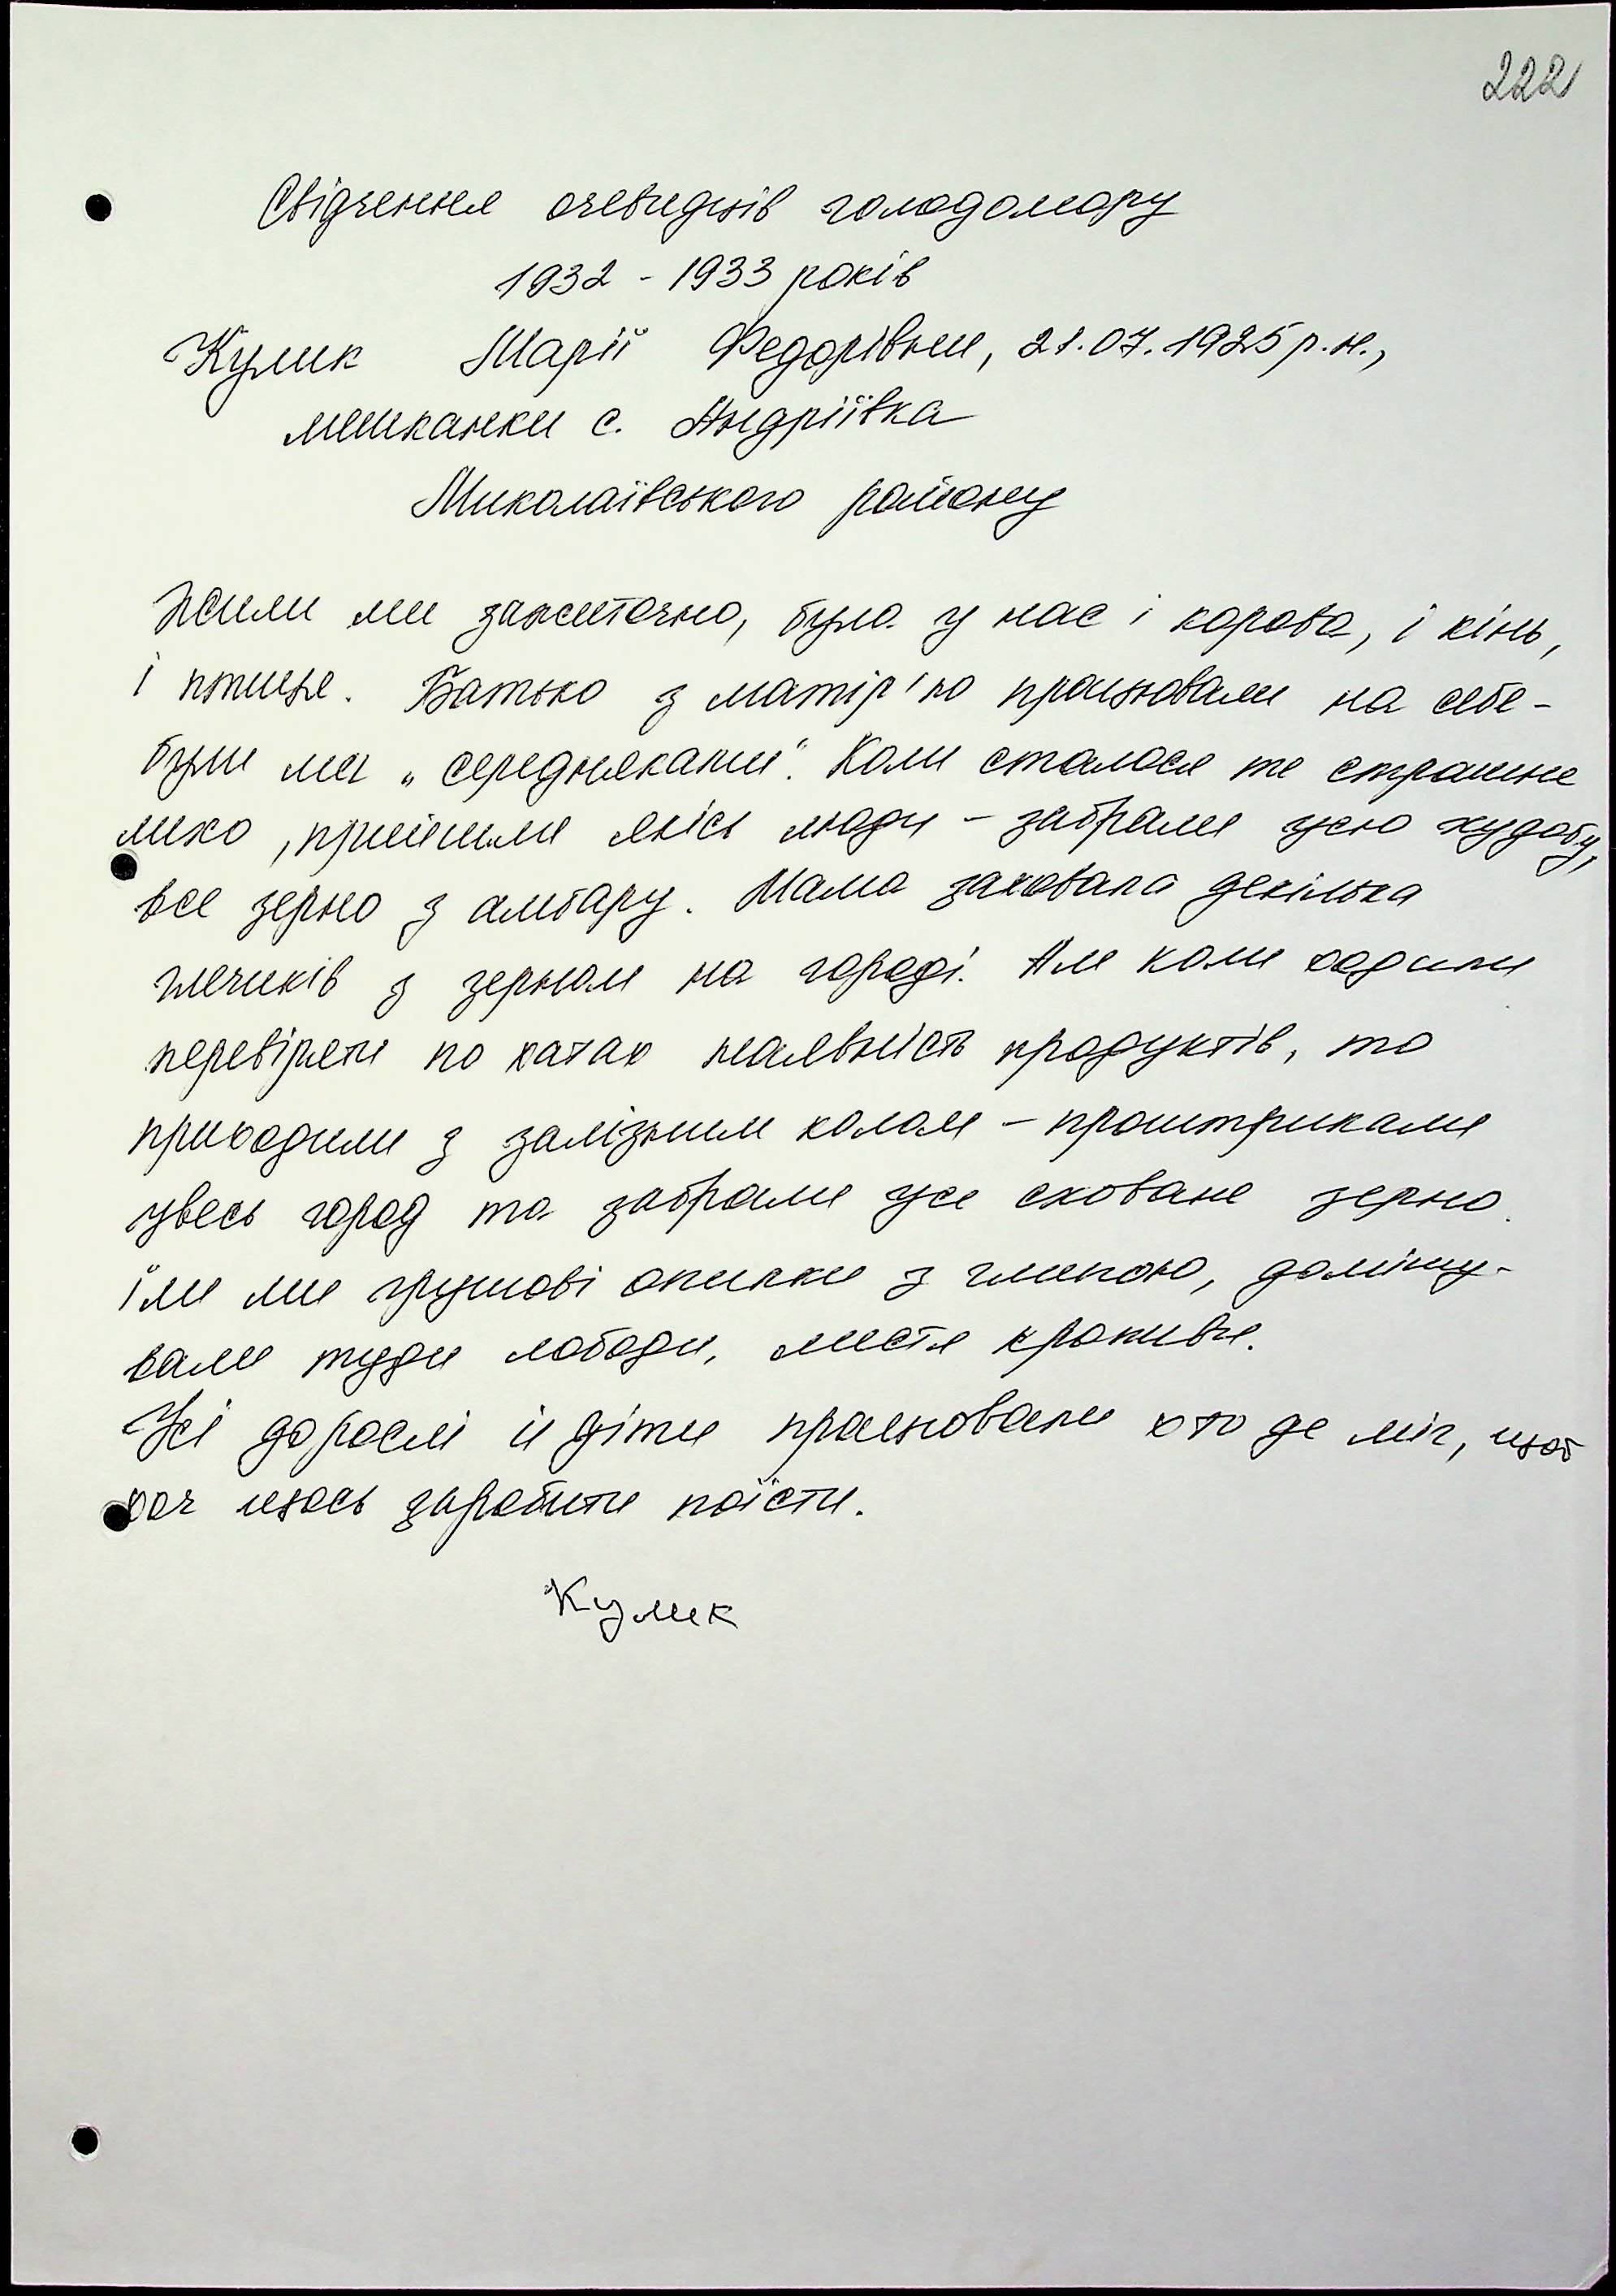 222
Свідчення очевидців голодомору
1932 - 1933 років
Кулик Марії Федорівни, 21.07.1925 р.н.,
мешканки с. Андріївка
Миколаївського району
Жили ми зажиточно, була у нас і корова, і кінь,
і птиця. Батько з матір'ю працювали на себе -
були ми „середняками". Коли сталося те страшне
лихо, прийшли якісь люди - забрали усю худобу,
все зерно з амбару. Мама заховала декілька
глечиків з зерном на городі. Але коли ходили
перевіряти по хатах наявність продуктів, то
приходили з залізним колом - проштрикали
увесь город та забрали усе сховане зерно.
їли ми грушові опилки з глиною, домішу-
вали туди лободи, листя кропиви.
Усі дорослі й діти працювали хто де міг, щоб
хоч щось заробити поїсти.
Кулик